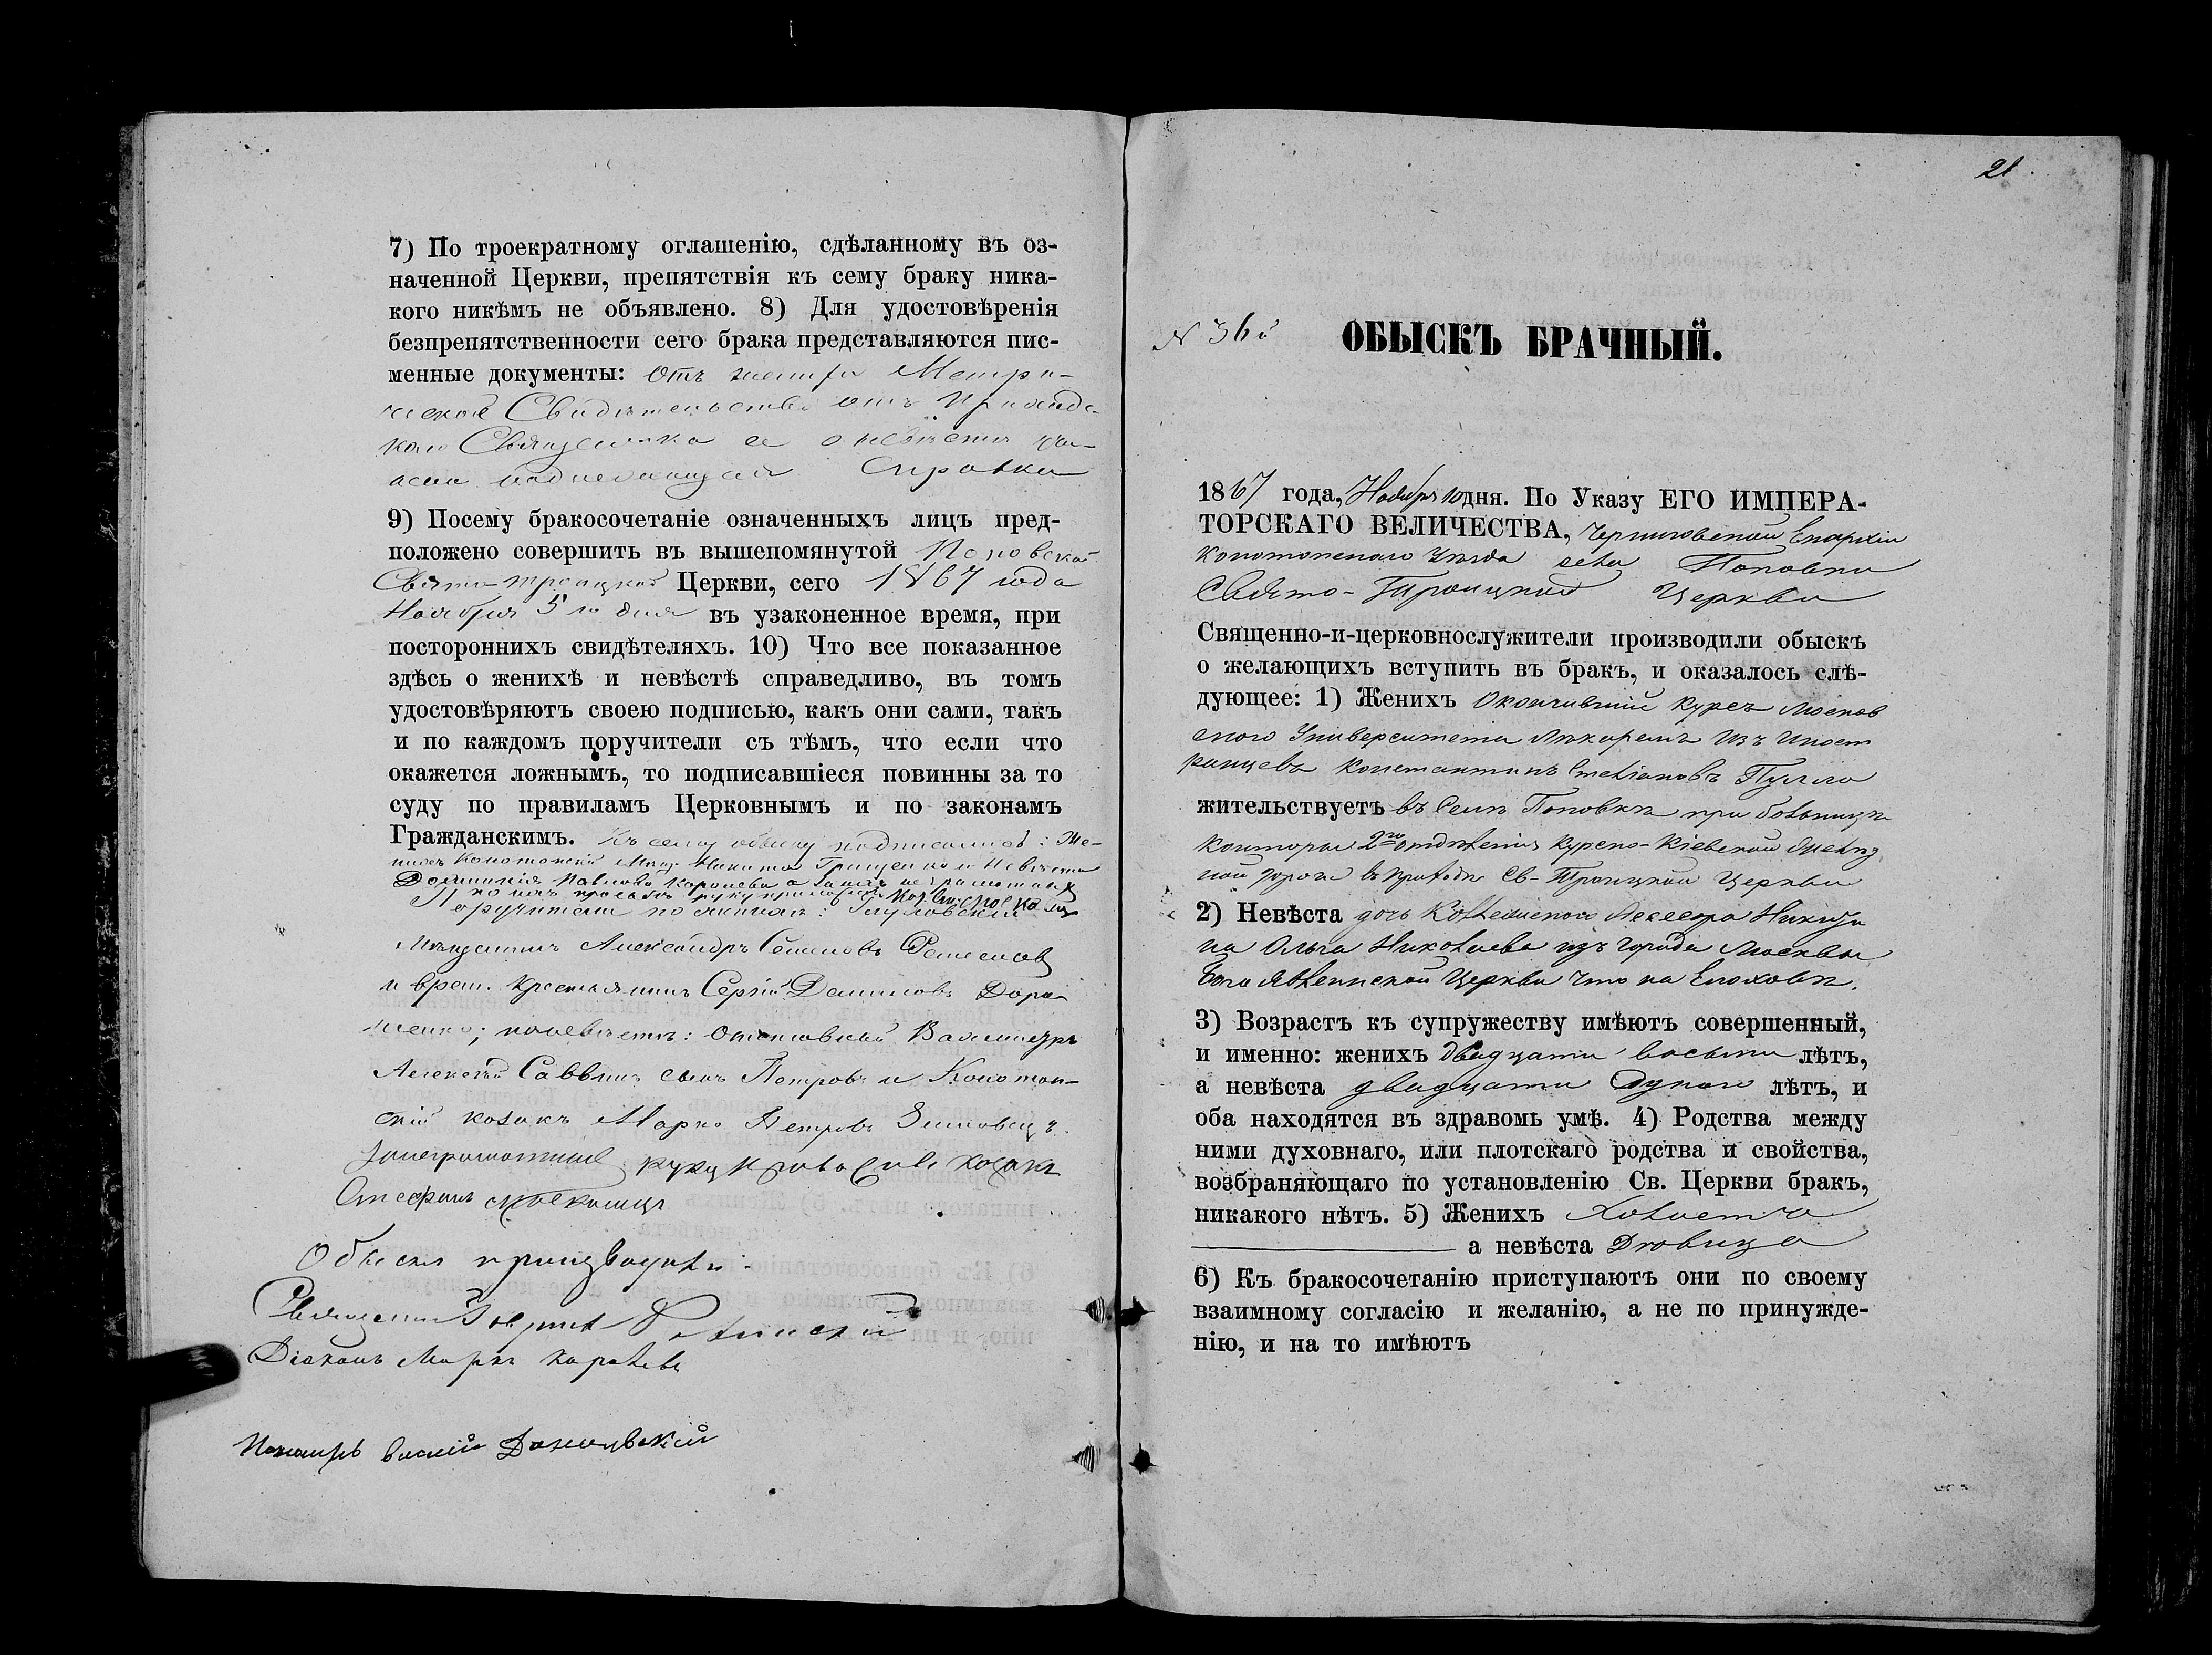 7) По троекратному оглашенію, сдѣланному въ оз-
наченной Церкви, препятствія къ сему браку ника-
кого никѣмъ не объявлено. 8) Для удостовѣренія
безпрепятственности сего брака представляются пис-
менные документы: Отъ Метри-
Свидѣтельство отъ Приходс-
каго Священника о невѣстѣ
Справка
9) Посему бракосочетаніе означенныхъ лицъ пред-
положено совершить въ вышепомянутой Поповской
Свято-Троицкой Церкви, сего 1867 года
Ноября 5 го дня въ узаконенное время, при
постороннихъ свидѣтеляхъ. 10) Что все показанное
здѣсь о женихѣ и невѣстѣ справедливо, въ томъ
удостовѣряютъ своею подписью, какъ они сами, такъ
и по каждомъ поручители съ тѣмъ, что если что
окажется ложнымъ, то подписавшіеся повинны за то
суду по правиламъ Церковнымъ и по законамъ
Гражданскимъ. Къ сему обыску подписались: Же-
нихъ Конотопскій Никита Гриценко и Невѣста
Павлова
Поручители по женихѣ:
Мѣщанинъ Александръ Семеновъ
и врем. крестьянинъ Сергій Даниловъ Доро-
шенко; по невѣстѣ:
Алексѣй Саввинъ сынъ Петровъ и Конотоп-
скій козакъ Марко Петровъ
руку козакъ
Стефанъ
Обыскъ производили:
Священникъ
Діаконъ Маркъ Королевъ
Пономарь
21.
N 36й
ОБЫСКЪ БРАЧНЫЙ.
1867 года, Ноября 10 дня. По Указу ЕГО ИМПЕРА-
ТОРСКАГО ВЕЛИЧЕСТВА, Черниговской Епархіи
Конотопскаго Уѣзда села Поповки
Свято-Троицкой Церкви
Священно-и-церковнослужители производили обыскъ
о желающихъ вступить въ бракъ, и оказалось слѣ-
дующее: 1) Женихъ Окончившій курсъ Москов
скаго Университета Лѣкаремъ Изъ Иност
ранцевъ Константинъ Пулло
жительствуетъ въ Селѣ Поповкѣ при больницѣ
Конторы 2го отдѣленія Курско-Кіевской желѣз
ной дороги въ приходѣ Св-Троицкой Церкви
2) Невѣста дочь Коллежскаго Ассесора
на Ольга Николаева изъ города Москвы
Богоявленской Церкви что на Елоховѣ.
3) Возрастъ къ супружеству имѣютъ совершенный,
и именно: женихъ двадцати восьми лѣтъ,
а невѣста двадцати одного лѣтъ, и
оба находятся въ здравомь умѣ. 4) Родства между
ними духовнаго, или плотскаго родства и свойства,
возбраняющаго по установленію Св. Церкви бракъ,
никакого нѣтъ. 5) Женихъ Холостъ
а невѣста Дѣвица
6) Къ бракосочетанію приступаютъ они по своему
взаимному согласію и желанію, а не по принужде-
нію, и на то имѣютъ